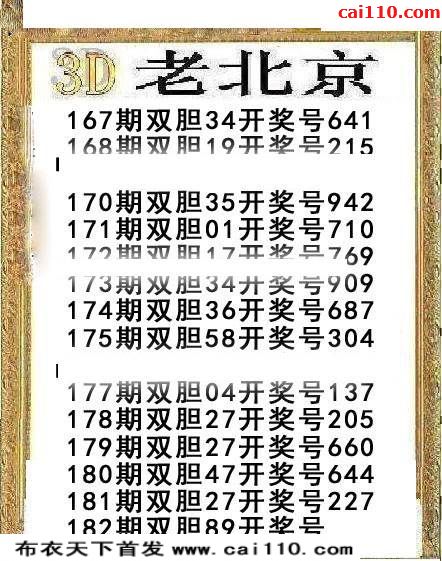 cai110.com
3D 老北京
167期双胆34开奖号641
168期双胆19开奖号215
170期双胆35开奖号942
171期双胆01开奖号710
172期双胆17开奖号769
173期双胆34开奖号909
174期双胆36开奖号687
175期双胆58开奖号304
177期双胆04开奖号137
178期双胆27开奖号205
179期双胆27开奖号660
180期双胆47开奖号644
181期双胆27开奖号227
182期双胆89开奖号
布衣天下首发 www.cai110.com